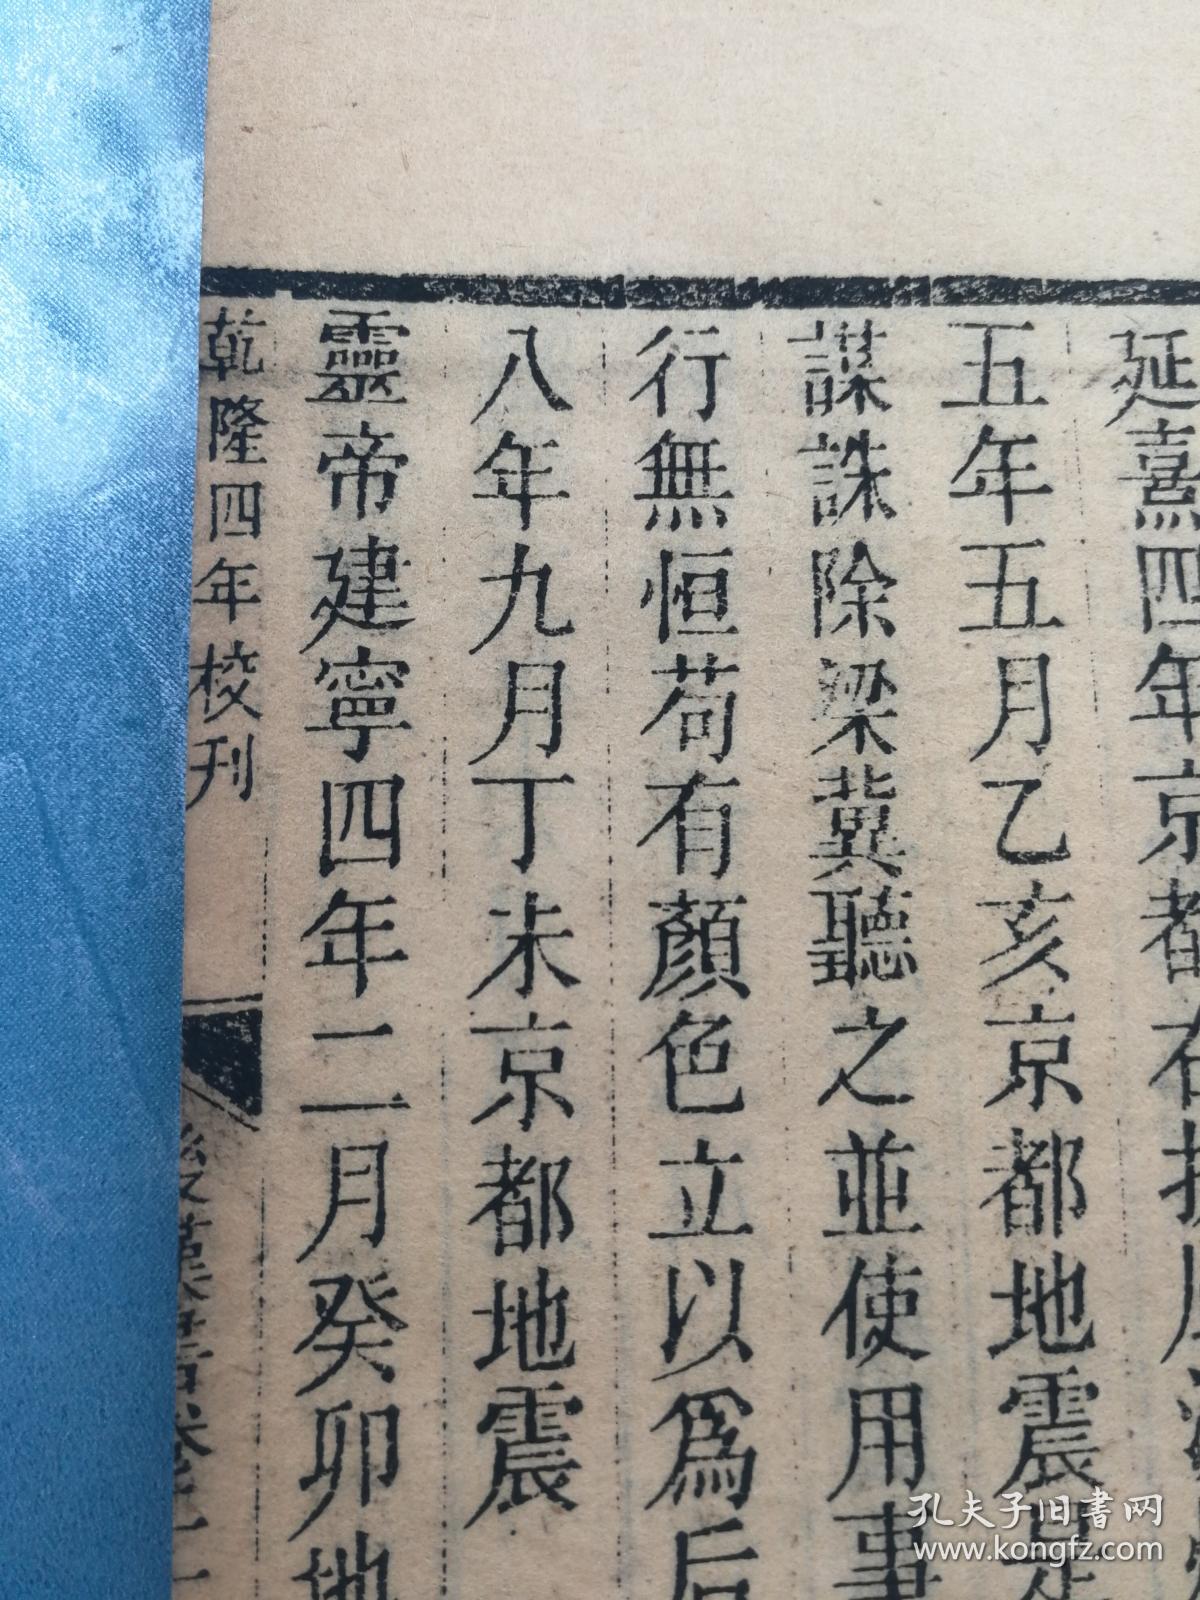 延熹四年京都右扶風
五年五月乙亥京都地震是
謀誅除梁冀聽之並使用事
行無恒苟有顏色立以為后
八年九月丁未京都地震
靈帝建寧四年二月癸卯地
乾隆四年校刊
後漢書卷
孔夫子旧书网
www.kongfz.com